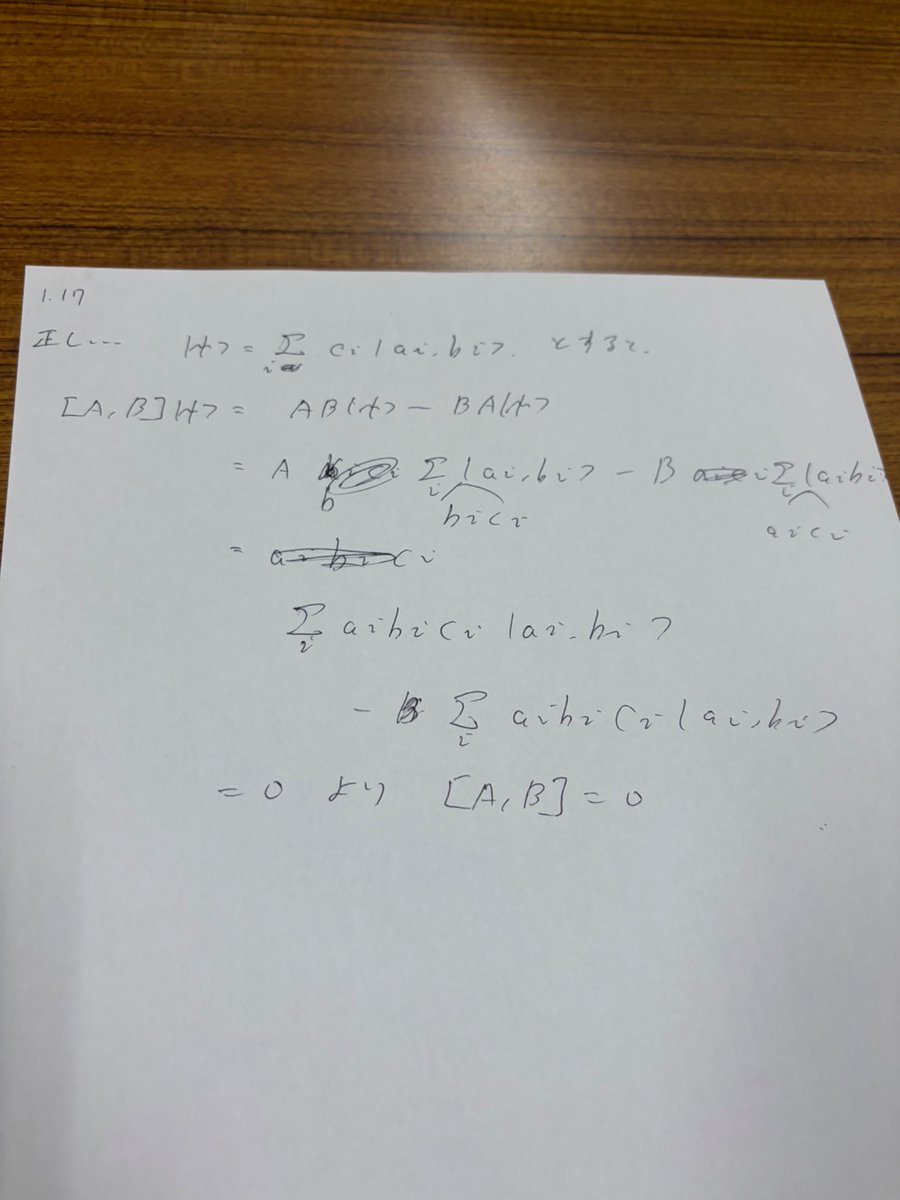 1.17
正し… |ψ> = Σ_i ci |ai, bi>. とする.
[A, B]|ψ> = AB|ψ> - BA|ψ>
= A Σ_i |ai, bi> - B Σ_i |ai bi>
b bici aici
= ci
Σ_i aibici |ai, bi>
- Σ_i aibici |ai, bi>
= 0 より [A, B] = 0